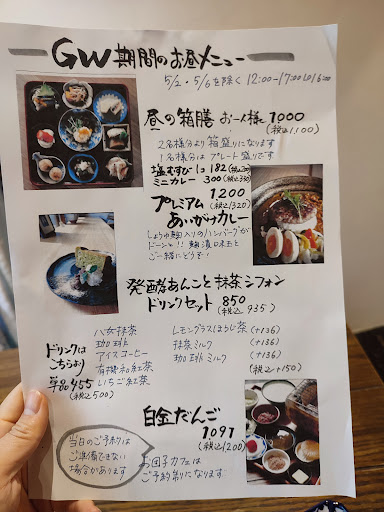 GW期間のお昼メニュー
5/2・5/6を除く 12:00-17:00 LO16:00
昼の箱膳 お一人様 1000
(税込1,100)
2名様分より箱盛りになります
1名様分はプレート盛りです
塩むすび 1コ 182
ミニカレー 300(税込330)
プレミアム 1200
(税込1320)
あいがけカレー
しょうゆ麹入りのハンバーグが
ドーンと!! 麹漬け味玉と
ご一緒にどうぞ!
発酵あんこと抹茶シフォン
ドリンクセット 850
(税込935)
ドリンクは
こちらより
単品455
(税込500)
八女抹茶
珈琲
アイスコーヒー
有機和紅茶
いちご紅茶
レモングラスほうじ茶 (+136)
抹茶ミルク (+136)
珈琲ミルク (+136)
(税込+150)
白金だんご
1091
(税込1200)
当日のご予約は
ご準備できない
場合があります
お団子カフェは
ご予約制になります